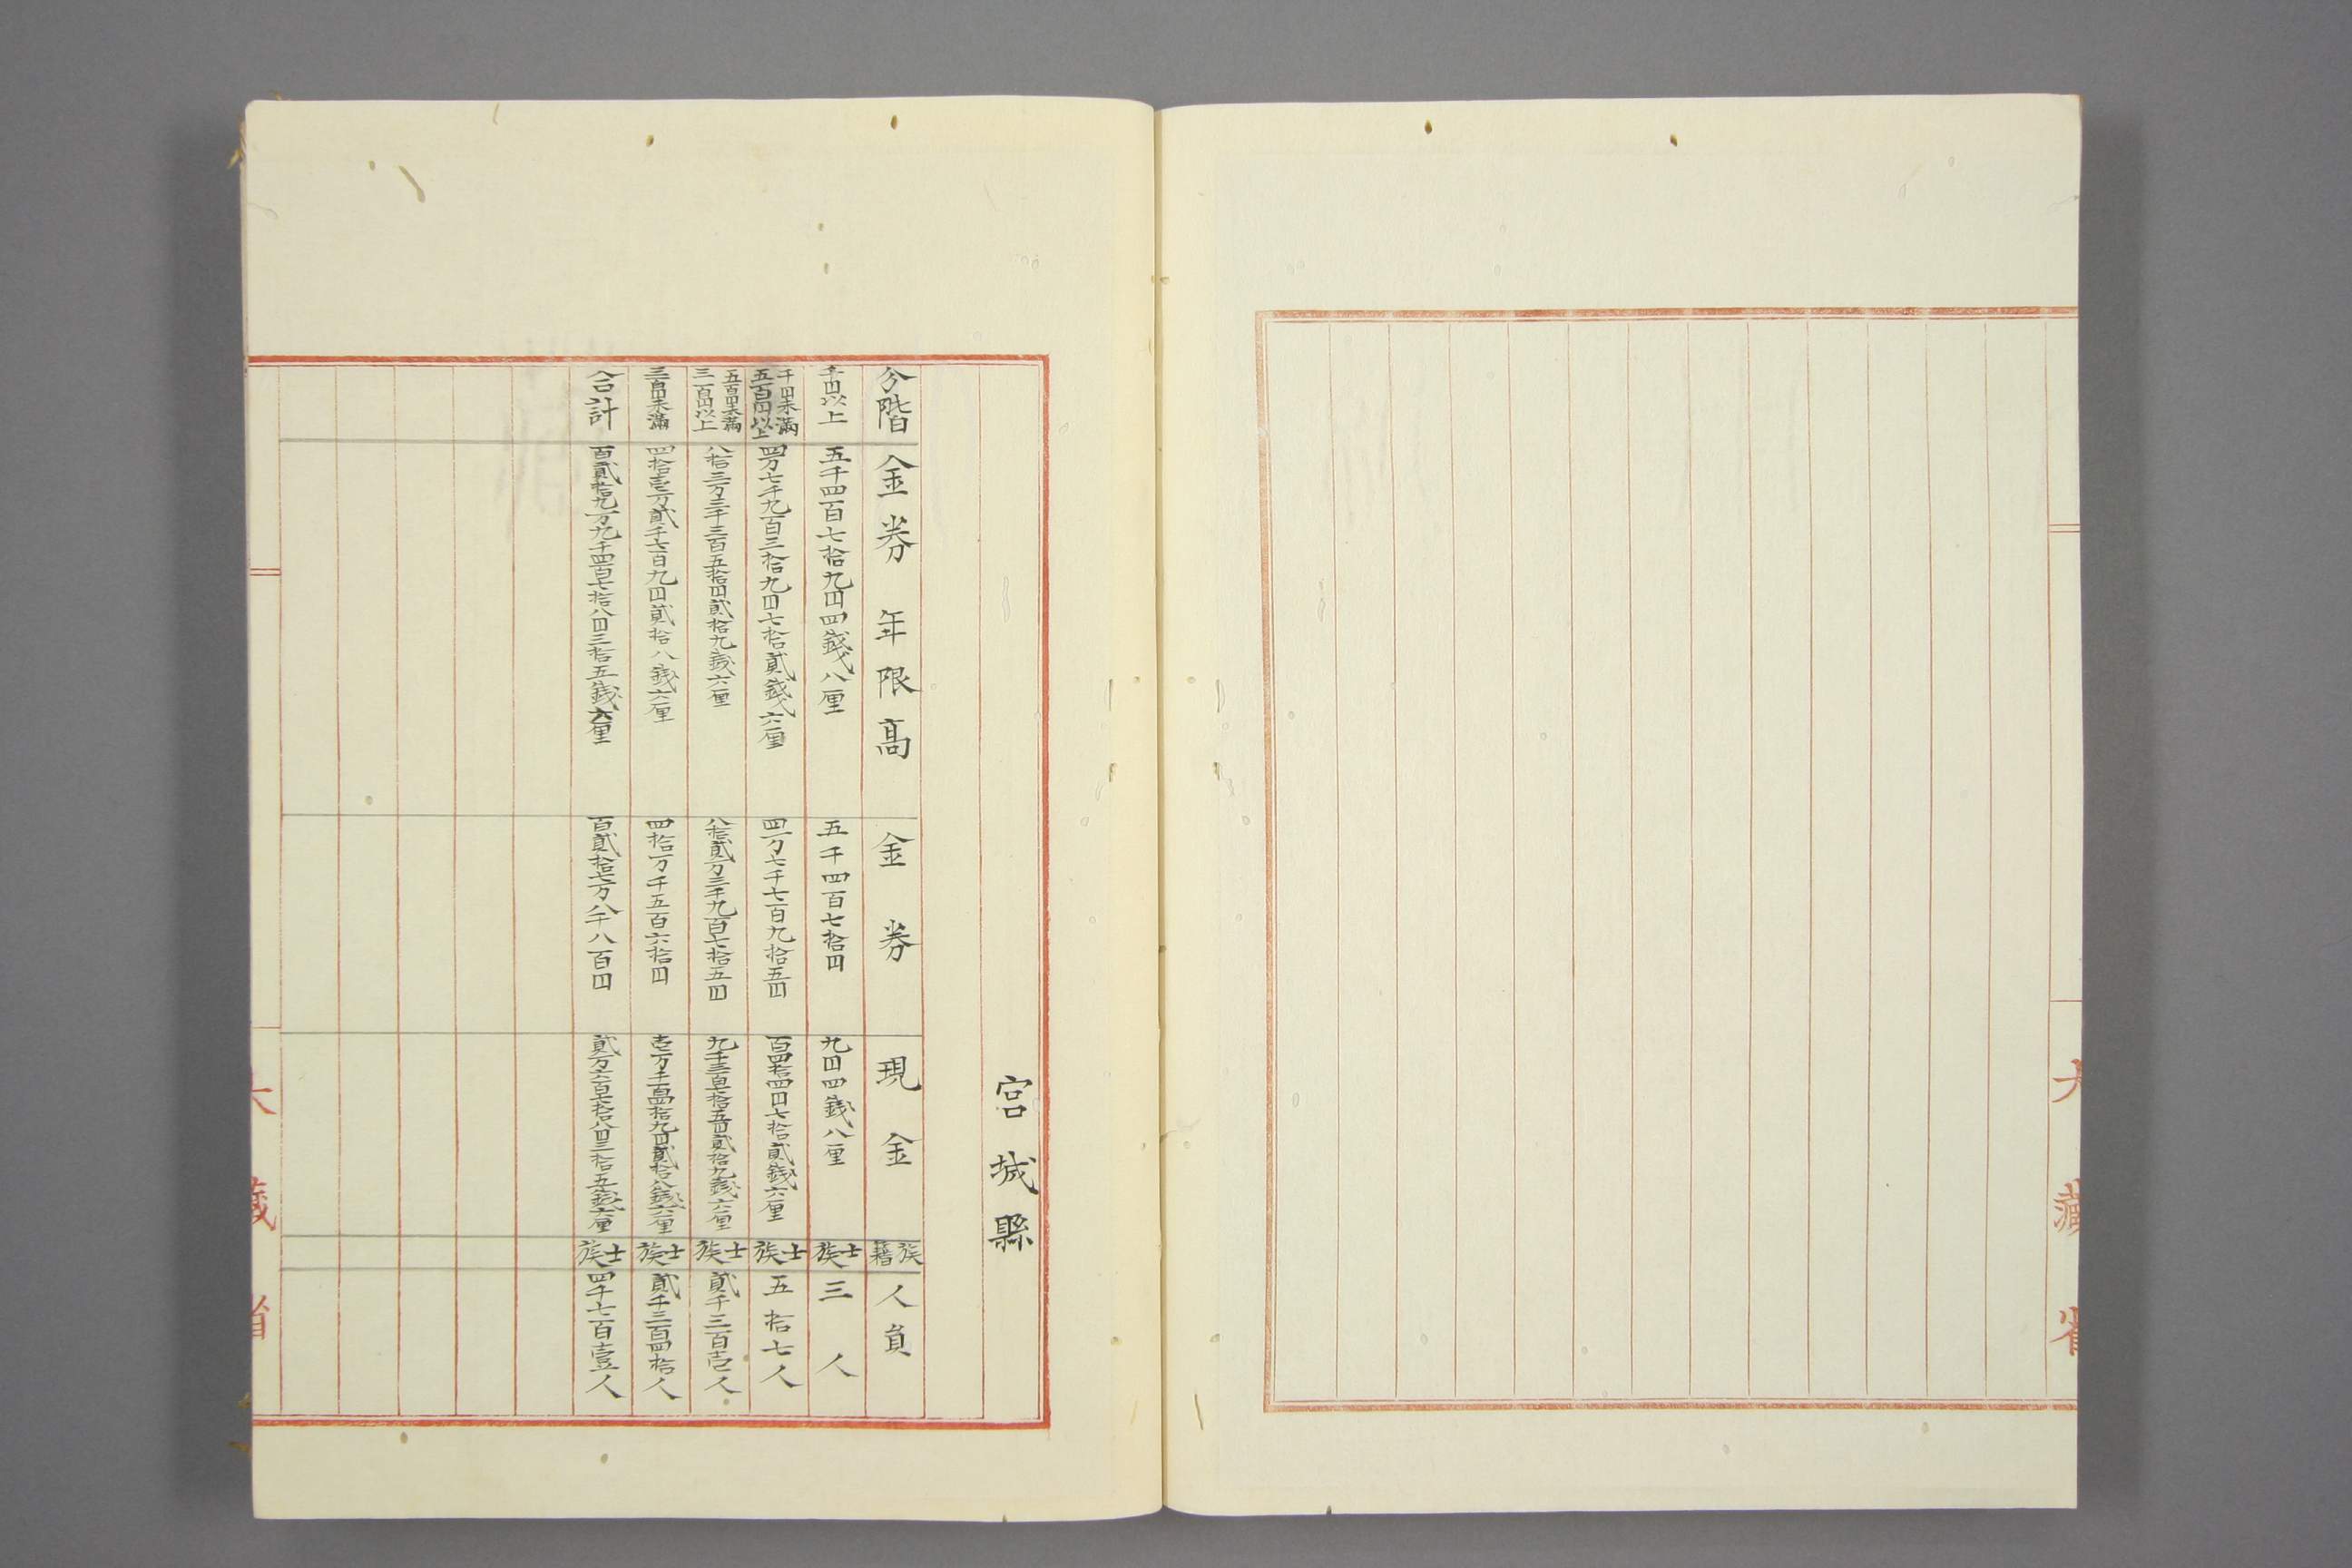 大藏省
宮城縣
分階 金券年限高 金券 現金 族籍 人員
千円以上 五千四百七拾九円四銭八厘 五千四百七拾円 九円四銭八厘 士族 三人
千円未満五百円以上 四万七千九百三拾九円七拾貳銭六厘 四万七千七百九拾五円 百四拾四円七拾貳銭六厘 士族 五拾七人
五百円未満三百円以上 八拾三万三千三百五拾円貳拾九銭六厘 八拾貳万三千九百七拾五円 九千三百七拾五円貳拾九銭六厘 士族 貳千三百壱人
三百円未満 四拾壱万貳千七百九円貳拾八銭六厘 四拾万千五百六拾円 壱万千百四拾九円貳拾八銭六厘 士族 貳千三百四拾人
合計 百貳拾九万九千四百七拾八円三拾五銭六厘 百貳拾七万八千八百円 貳万六百七拾八円三拾五銭六厘 士族 四千七百壹人
大藏省